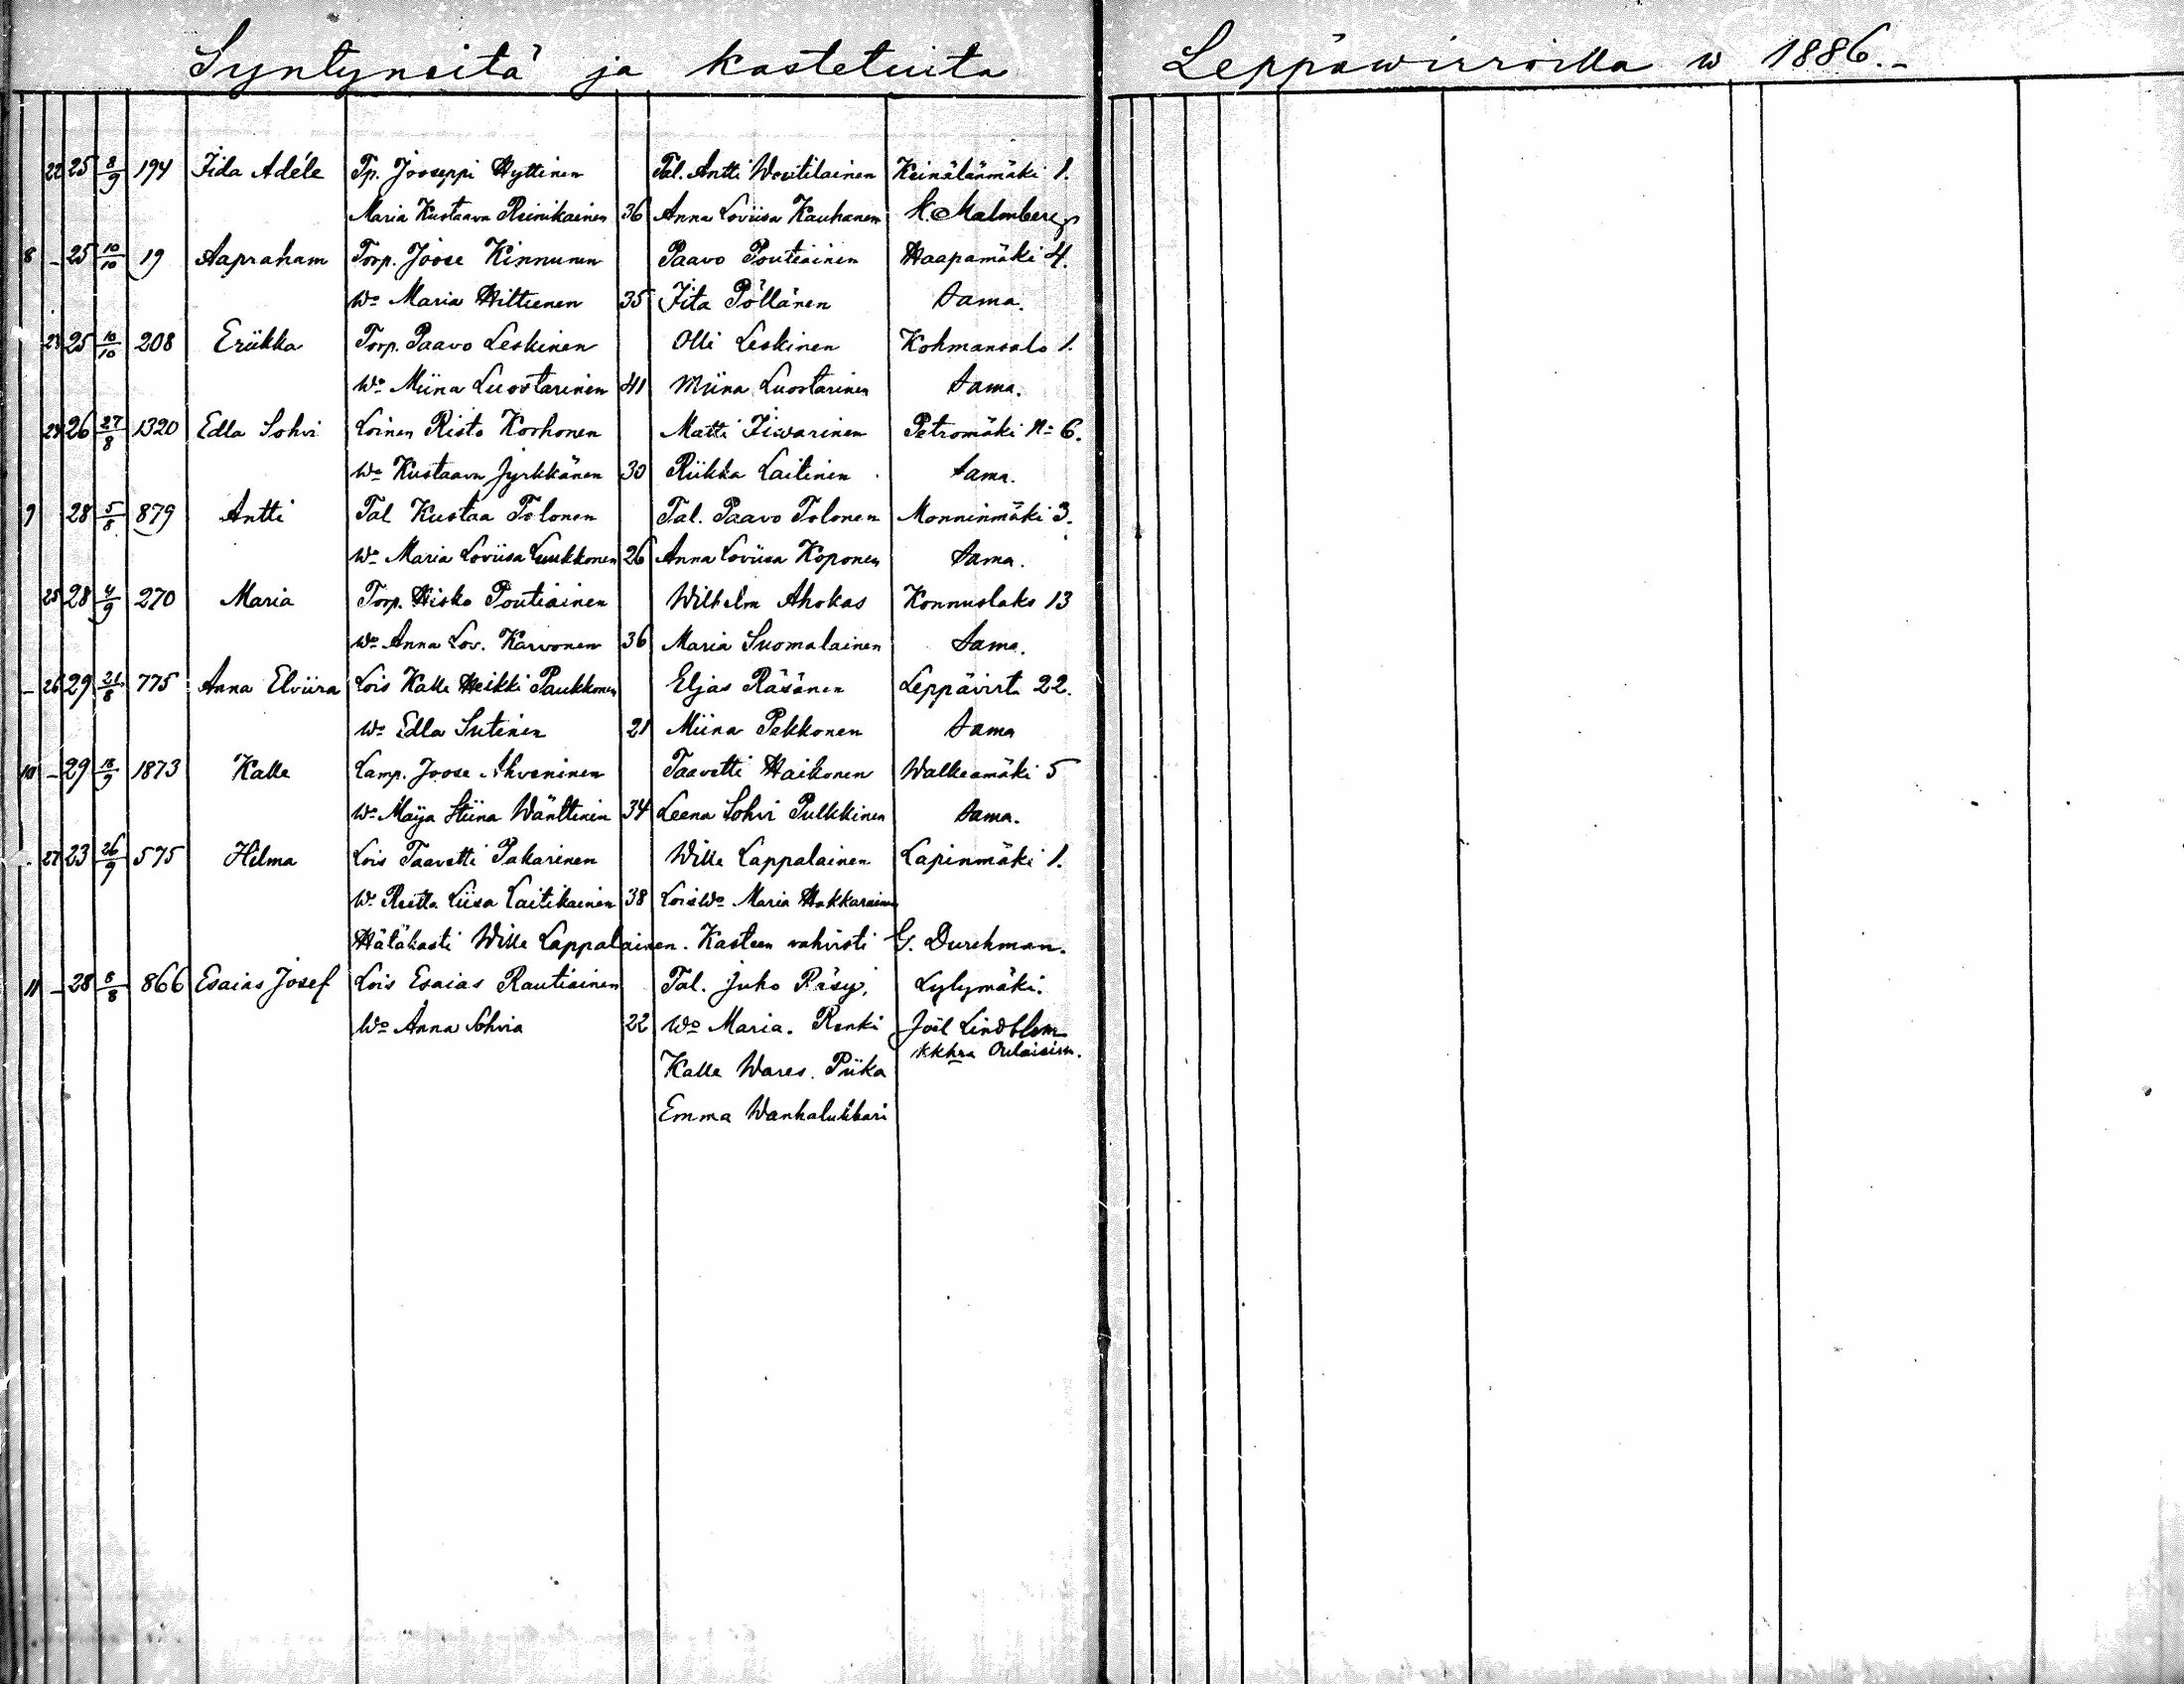 Syntyneitä ja kastetuita Leppäwirroilla w 1886.-
22 25 8/9 194 Iida Adéle Tp. Jooseppi Hyttinen Tal. Antti Woutilainen Keinälänmäki 1.
Maria Kustaava Reinikainen 36 Anna Loviisa Kauhanen K. Malmberg
8 - 25 10/10 19 Aapraham Torp. Joose Kinnunen Paavo Poutiainen Haapamäki 4.
Wo Maria Hiltunen 35 Iita Pöllänen Sama.
23 25 10/10 208 Eriikka Torp. Paavo Leskinen Olli Leskinen Kohmansalo 1.
Wo Miina Luostarinen 41 Miina Luostarinen Sama.
24 26 27/8 1320 Edla Sohvi Loinen Risto Korhonen Matti Iivarinen Petromäki No 6.
Wo Kustaava Jyrkkänen 30 Riikka Laitinen Sama.
9 28 5/8 879 Antti Tal Kustaa Tolonen Tal. Paavo Tolonen Monninmäki 3.
Wo Maria Loviisa Luukkonen 26 Anna Loviisa Koponen Sama.
25 28 4/9 270 Maria Torp. Hisko Poutiainen Wilhelm Ahokas Konnuslaks 13
Wo Anna Lov. Karvonen 36 Maria Suomalainen Sama.
- 26 29 21/8 775 Anna Elviira Lois Kalle Heikki Paukkonen Eljas Räsänen Leppävirt. 22.
Wo Edla Sutinen 21 Miina Pekkonen Sama
10 - 29 18/9 1873 Kalle Lamp. Joose Ahveninen Taavetti Haikonen Walkeamäki 5
Wo Maija Stiina Wänttinen 34 Leena Sohvi Pulkkinen Sama.
27 23 26/9 575 Hilma Lois Taavetti Pakarinen Wille Lappalainen Lapinmäki 1.
Wo Reetta Liisa Laitikainen 38 Lois Wo Maria Hakkarainen
Hätäkasti Wille Lappalainen. Kasteen vahvisti G. Durchman.
11 - 28 6/8 866 Esaias Josef Lois Esaias Rautiainen Tal. Juho Räsy, Lylymäki.
Wo Anna Sohvia 22 Wo Maria. Renki Joël Lindblom
kkhra Oulaisim.
Kalle Wares. Piika
Emma Wanhalukkari